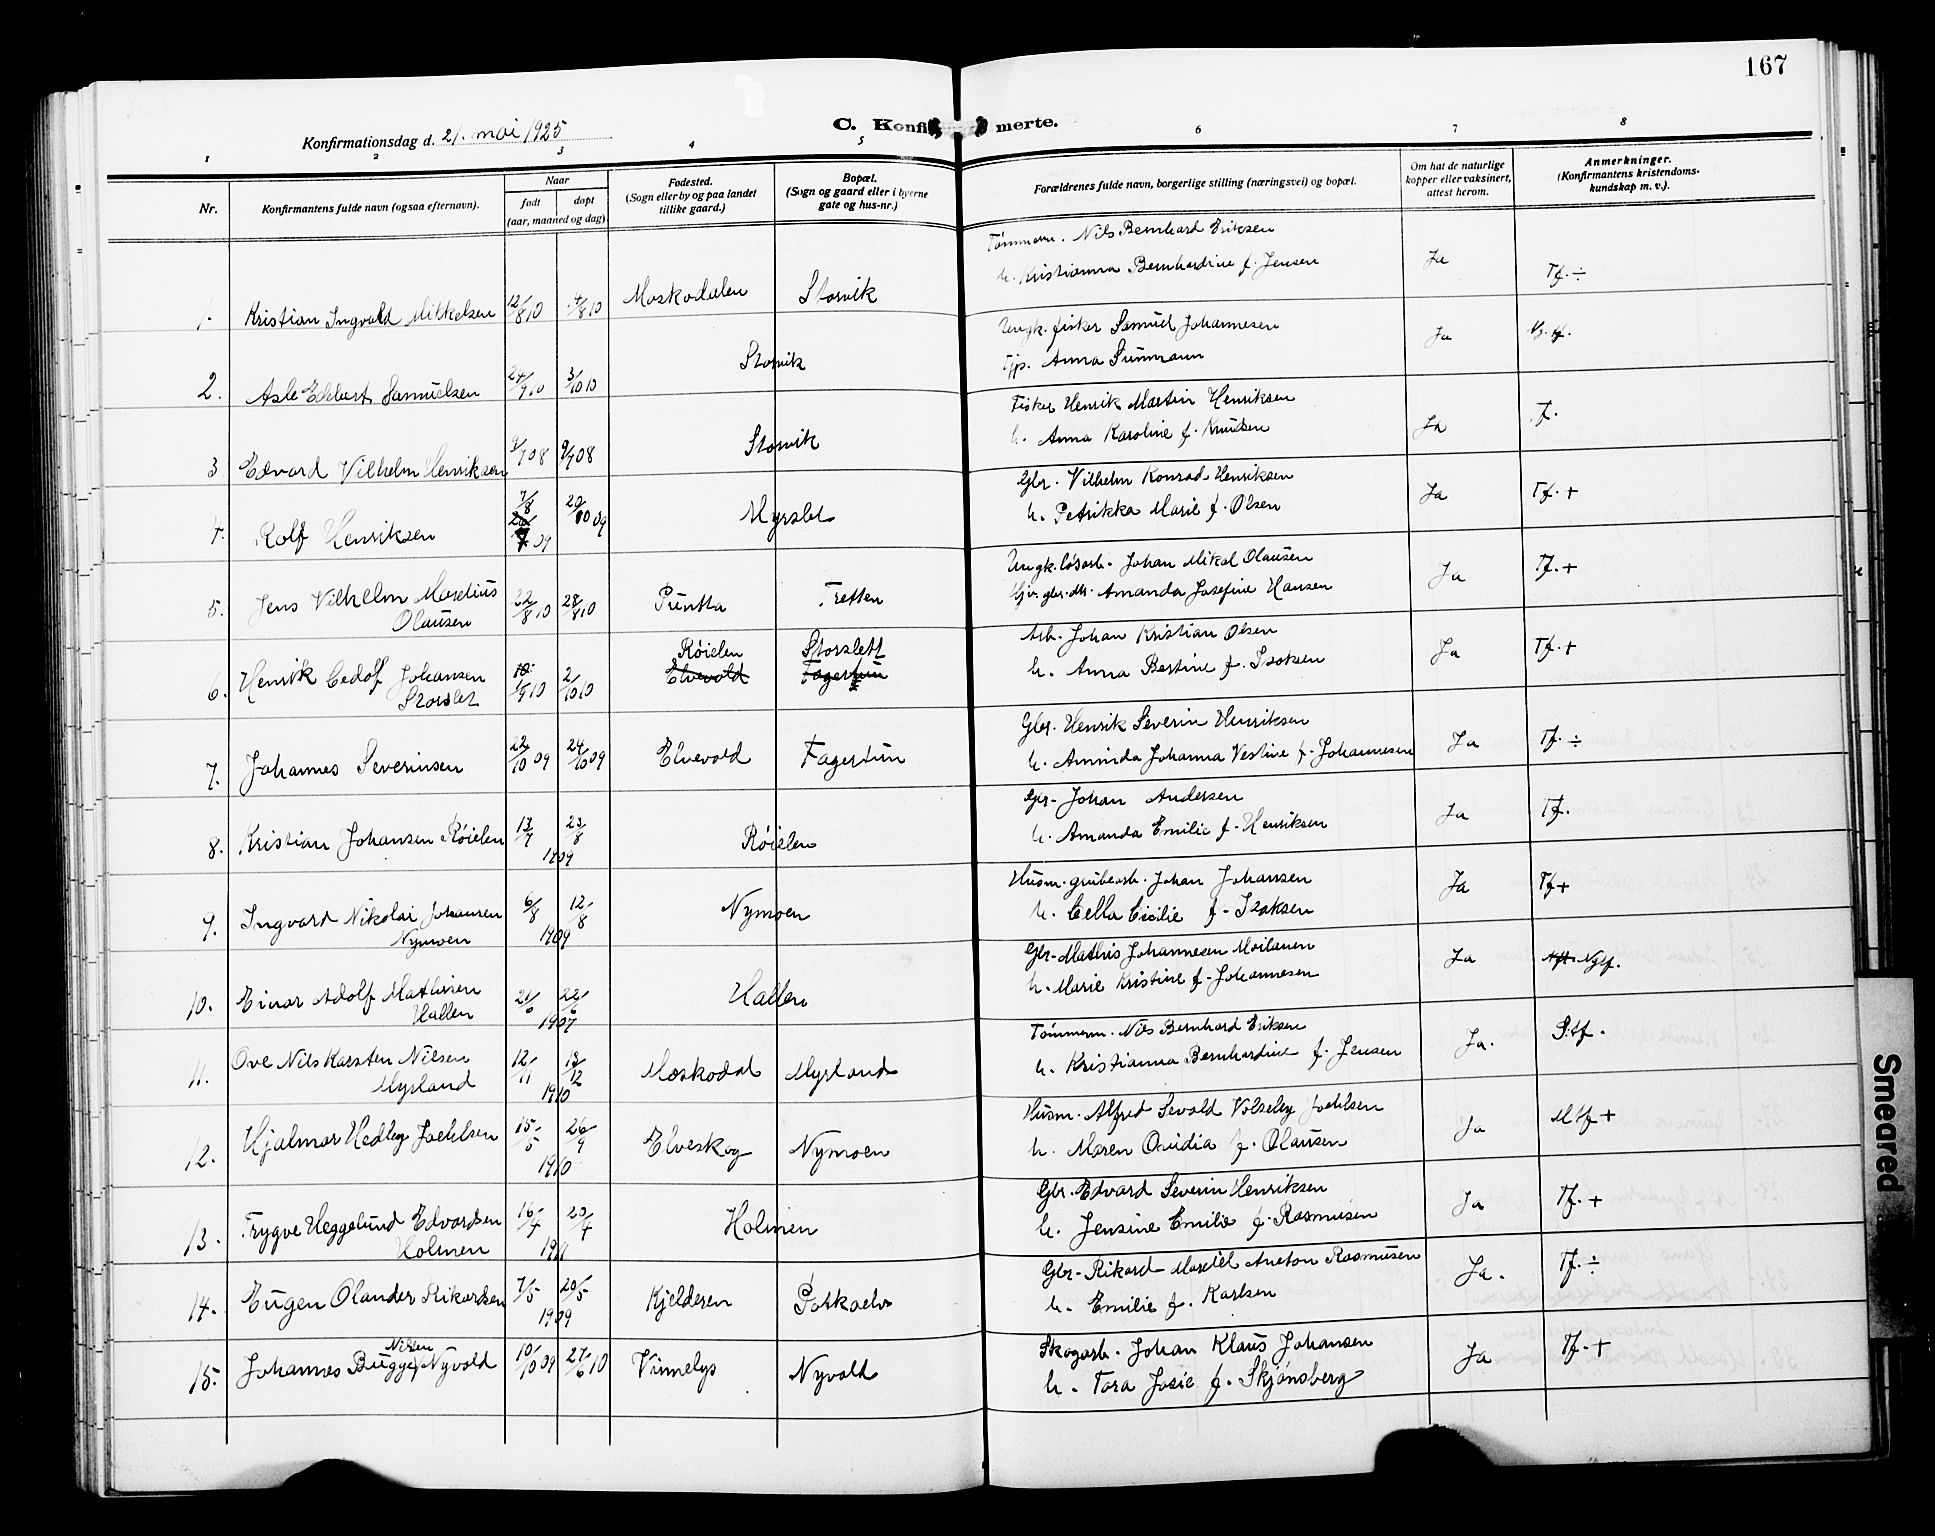 167
Konfirmationsdag d. 21. mai 1925
C. Konfi merte.
1 2 3 4 5 6 7 8
Nr.
Konfirmantens fulde navn (ogsaa efternavn).
Naar
født
døpt
(aar, maaned og dag)
Fødested.
(Sogn eller by og paa landet
tillike gaard.)
Bopæl.
(Sogn og gaard eller i byerne
gate og hus-nr.)
Forældrenes fulde navn, borgerlige stilling (næringsvei) og bopæl.
Om hat de naturlige
kopper eller vaksinert,
attest herom.
Anmerkninger.
(Konfirmantens kristendoms-
kundskap m. v.).
Tömmerm. Nils Bernhard Eriksen
1. Kristian Ingvald Mikkelsen 12/8 10 14/8 10 Moskodalen Storvik h. Kristianna Bernhardine f. Jensen Ja Tf. ÷
Ungk. fisker Samuel Johannesen Ja
2. Asle Edebert Samuelsen 24/9 10 3/10 10 Storvik Tjp. Anna Sunmann
Fisker Henrik Martin Henriksen Tf.
3 Edvard Vilhelm Henriksen 9/7 08 Storvik h. Anna Karoline f. Knudsen Ja
Gbr. Vilhelm Konrad Henriksen
4. Rolf Henriksen 7/8 09 20/10 09 Myrslet h. Petrikka Marie f. Olsen Ja Tf. +
Ungk. løsarb. Johan Mikal Olausen
5. Jens Vilhelm Maselius 22/8 10 28/8 10 Puntta Tretten gbr. dtr. Amanda Josefine Hansen Ja Tf. +
Olausen
Røielen Storslett Arb. Johan Kristian Olsen
6. Henrik Cedolf Johansen 10/9 10 2/10 10 Elvevold Fagertun h. Anna Bertine f. Isaksen Ja Tf. +
Storslet
Gbr. Henrik Severin Henriksen
7. Johannes Severinsen 22/10 09 24/10 09 Elvevold Fagertun h. Aminda Johanna Vestine f. Johannesen Ja Tf. ÷
Gbr. Johan Andersen
8. Kristian Johansen Røielen 13/7 23/8 1909 Røielen h. Amanda Emilie f. Henriksen Ja Tf.
Husm. grubearb. Johan Johansen
9. Ingvard Nikolai Johansen 6/8 12/8 1909 Nymoen h. Cella Cicilie f. Isaksen Ja Tf +
Nymoen
Gbr. Mathis Johannesen Moilanen
10. Einar Adolf Mathisen 21/6 22/6 1907 Hallen h. Marie Kristine f. Johannesen Ja Ngtf.
Hallen
Tömmerm. Nils Bernhard Eriksen
11. Ove Nils Karsten Nilsen 12/11 18/12 1910 Moskodal Myrland h. Kristianna Bernhardine f. Jensen Ja. S.tf.
Myrland
Husm. Alfred Sevald Volseley Joehlsen
12. Hjalmar Hedley Joehlsen 15/5 26/9 1910 Elveskog Nymoen h. Maren Ovidia f. Olausen Ja Mtf +
Gbr. Edvard Severin Henriksen
13. Trygve Heggelund Edvardsen 16/4 23/4 1911 Holmen h. Jensine Emilie f. Rasmusen Ja Tf. +
Holmen
Gbr. Rikard Mardel Aneton Rasmusen
14. Eugen Olander Rikardsen 7/5 20/5 1909 Kjelderen Porkaelv h. Emilie f. Karlsen Ja. Tf. ÷
Nilsen Skogarb. Johan Klaus Johansen
15. Johannes Bugge Nyvold 10/10 09 27/6 10 Vinnelys Nyvold h. Tora Josie f. Skjønsberg Ja Tf. +
Smeared